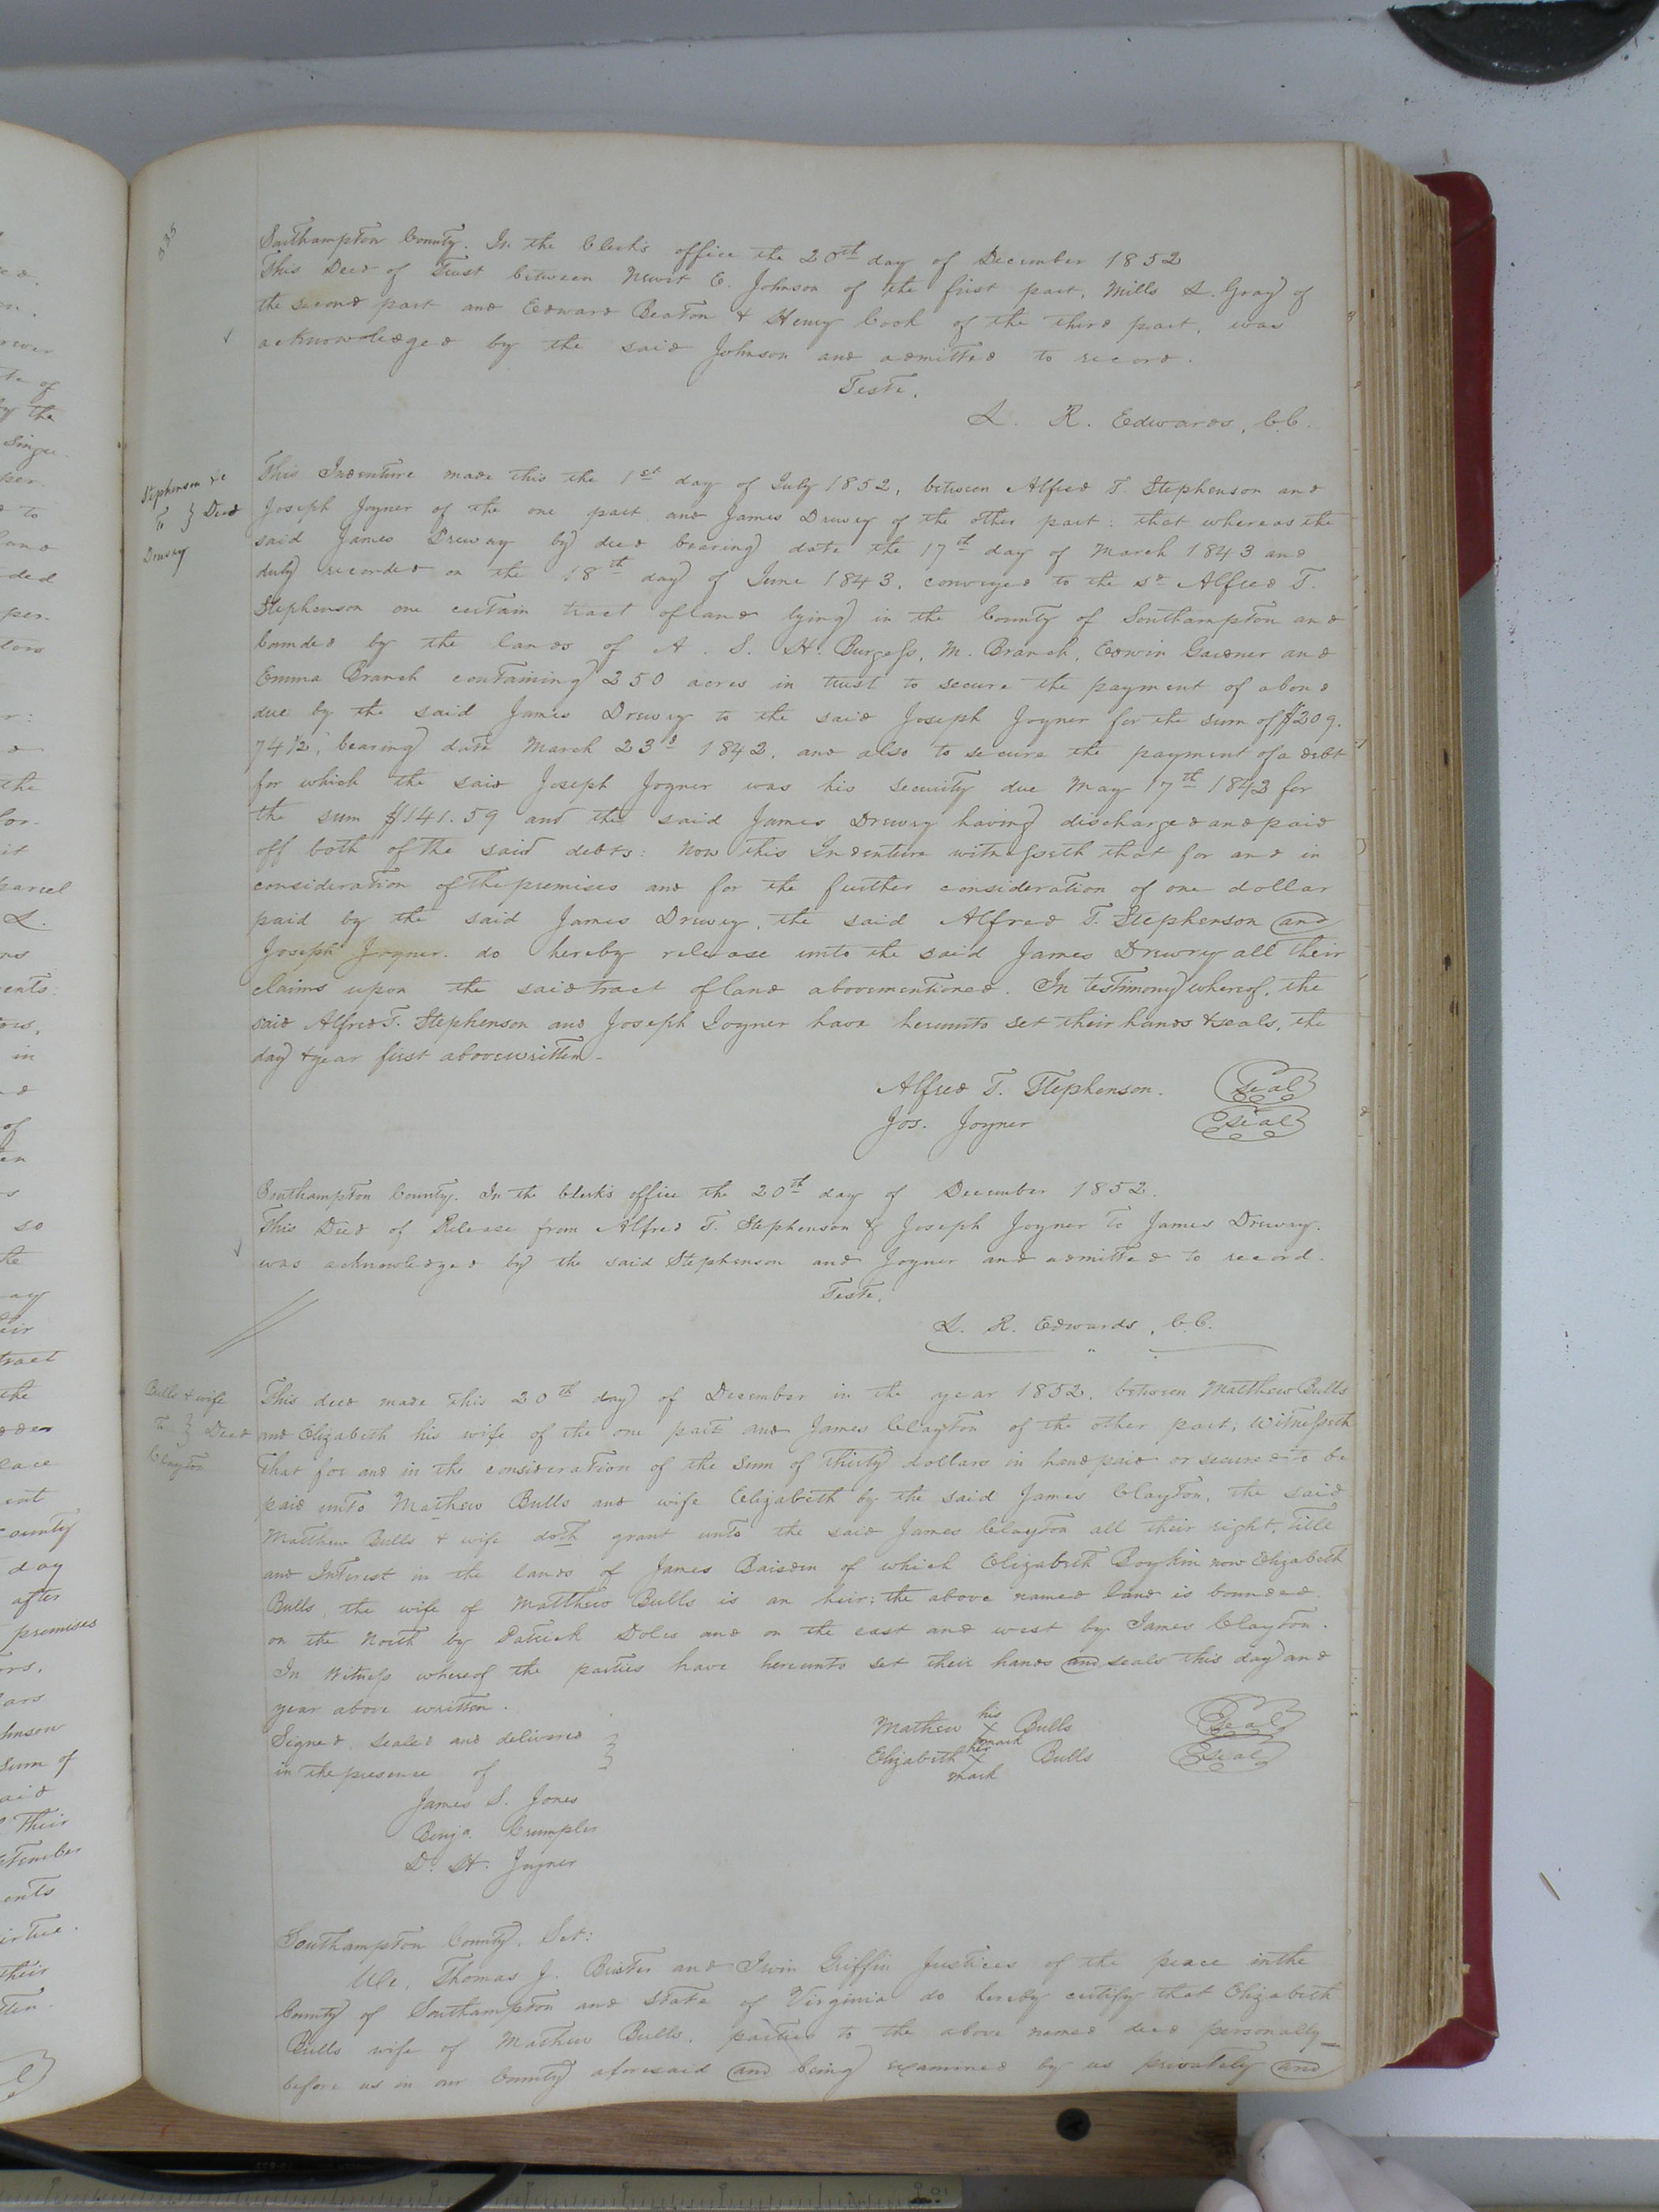 535
Southampton County. In the Clerk's office the 20th day of December 1852
This Deed of Trust between Newit E. Johnson of the first part, Mills L. Gray of
the second part and Edward Beaton & Henry Cook of the third part, was
acknowledged by the said Johnson and admitted to record.
Teste,
L. R. Edwards, C.C.
Stephenson &c
To } Deed
Drewry
This Indenture made this the 1st day of July 1852, between Alfred T. Stephenson and
Joseph Joyner of the one part and James Drewry of the other part: that whereas the
said James Drewry by deed bearing date the 17th day of March 1843 and
duly recorded on the 18th day of June 1843, conveyed to the sd Alfred T.
Stephenson one certain tract of land lying in the County of Southampton and
bounded by the lands of A. S. H. Burgess, M. Branch, Edwin Gardner and
Emma Branch containing 250 acres in trust to secure the payment of a bond
due by the said James Drewry to the said Joseph Joyner for the sum of $209.
74 1/2, bearing date March 23d 1842, and also to secure the payment of a debt
for which the said Joseph Joyner was his security due May 17th 1843 for
the sum $141.59 and the said James Drewry having discharged and paid
off both of the said debts: Now this Indenture witnesseth that for and in
consideration of the premises and for the further consideration of one dollar
paid by the said James Drewry, the said Alfred T. Stephenson and
Joseph Joyner. do hereby release unto the said James Drewry all their
claims upon the said tract of land abovementioned. In testimony whereof, the
said Alfred T. Stephenson and Joseph Joyner have hereunto set their hands & seals, the
day & year first above written.
Alfred T. Stephenson. Seal
Jos. Joyner Seal
Southampton County. In the Clerk's office the 20th day of December 1852.
This Deed of Release from Alfred T. Stephenson & Joseph Joyner To James Drewry.
was acknowledged by the said Stephenson and Joyner and admitted to record.
Teste,
L. R. Edwards, C.C.
Bulls & wife
To } Deed
Clayton
This deed made this 20th day of December in the year 1852, between Matthew Bulls
and Elizabeth his wife of the one part and James Clayton of the other part, Witnesseth
That for and in the consideration of the Sum of thirty dollars in hand paid or secured to be
paid unto Mathew Bulls and wife Elizabeth by the said James Clayton, the said
Matthew Bulls & wife doth grant unto the said James Clayton all their right, title
and Interest in the lands of James Baisden of which Elizabeth Boykin now Elizabeth
Bulls the wife of Matthew Bulls is an heir; the above named land is bounded
on the North by Patrick Doles and on the east and west by James Clayton.
In Witness whereof the parties have hereunto set their hands and seals this day and
year above written.
Signed, sealed and delivered
in the presence of
James S. Jones
Benja. Crumpler
D. H. Joyner
Mathew his X mark Bulls Seal
Elizabeth her X mark Bulls Seal
Southampton County, Sct:
We, Thomas J. and Irvin Griffin Justices of the peace in the
County of Southampton and State of Virginia do hereby certify that Elizabeth
Bulls wife of Mathew Bulls, parties to the above named deed personally
before us in our County aforesaid and being examined by us privately and